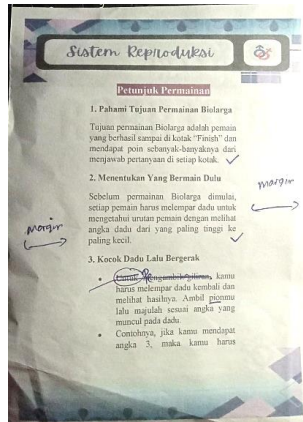 Sistem Reproduksi
Petunjuk Permainan
1. Pahami Tujuan Permainan Biolarga
Tujuan permainan Biolarga adalah pemain
yang berhasil sampai di kotak "Finish" dan
mendapat poin sebanyak-banyaknya dari
menjawab pertanyaan di setiap kotak.
2. Menentukan Yang Bermain Dulu
Sebelum permainan Biolarga dimulai,
setiap pemain harus melempar dadu untuk
mengetahui urutan pemain dengan melihat
angka dadu dari yang paling tinggi ke
paling kecil.
margin
margin
3. Kocok Dadu Lalu Bergerak
• Untuk mengambil giliran, kamu
harus melempar dadu kembali dan
melihat hasilnya. Ambil pionmu
lalu majulah sesuai angka yang
muncul pada dadu.
• Contohnya, jika kamu mendapat
angka 3, maka kamu harus